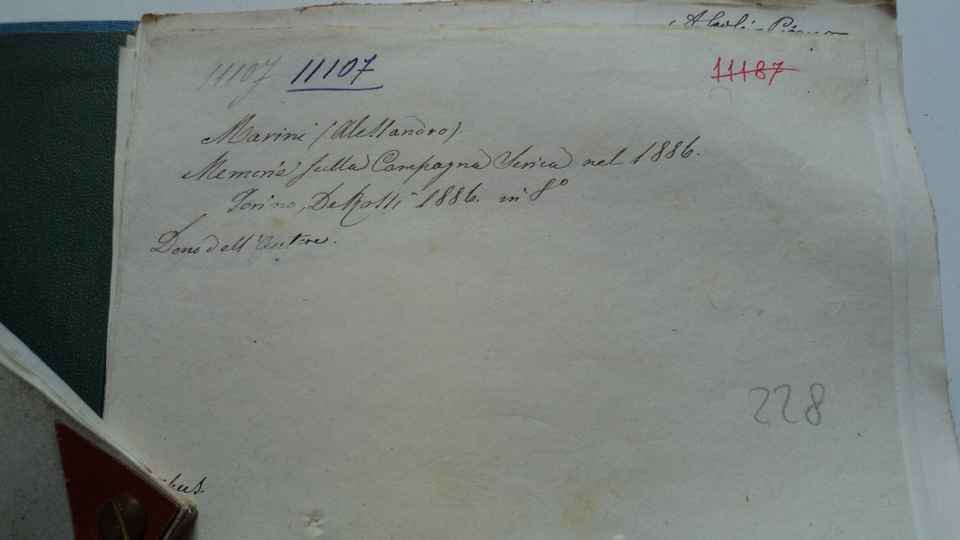 11107 11107 11187
Marini (Alessandro)
Memorie sulla Campagna Serica nel 1886.
Torino, De Rossi 1886. in 8º
Dono dell'Autore.
228